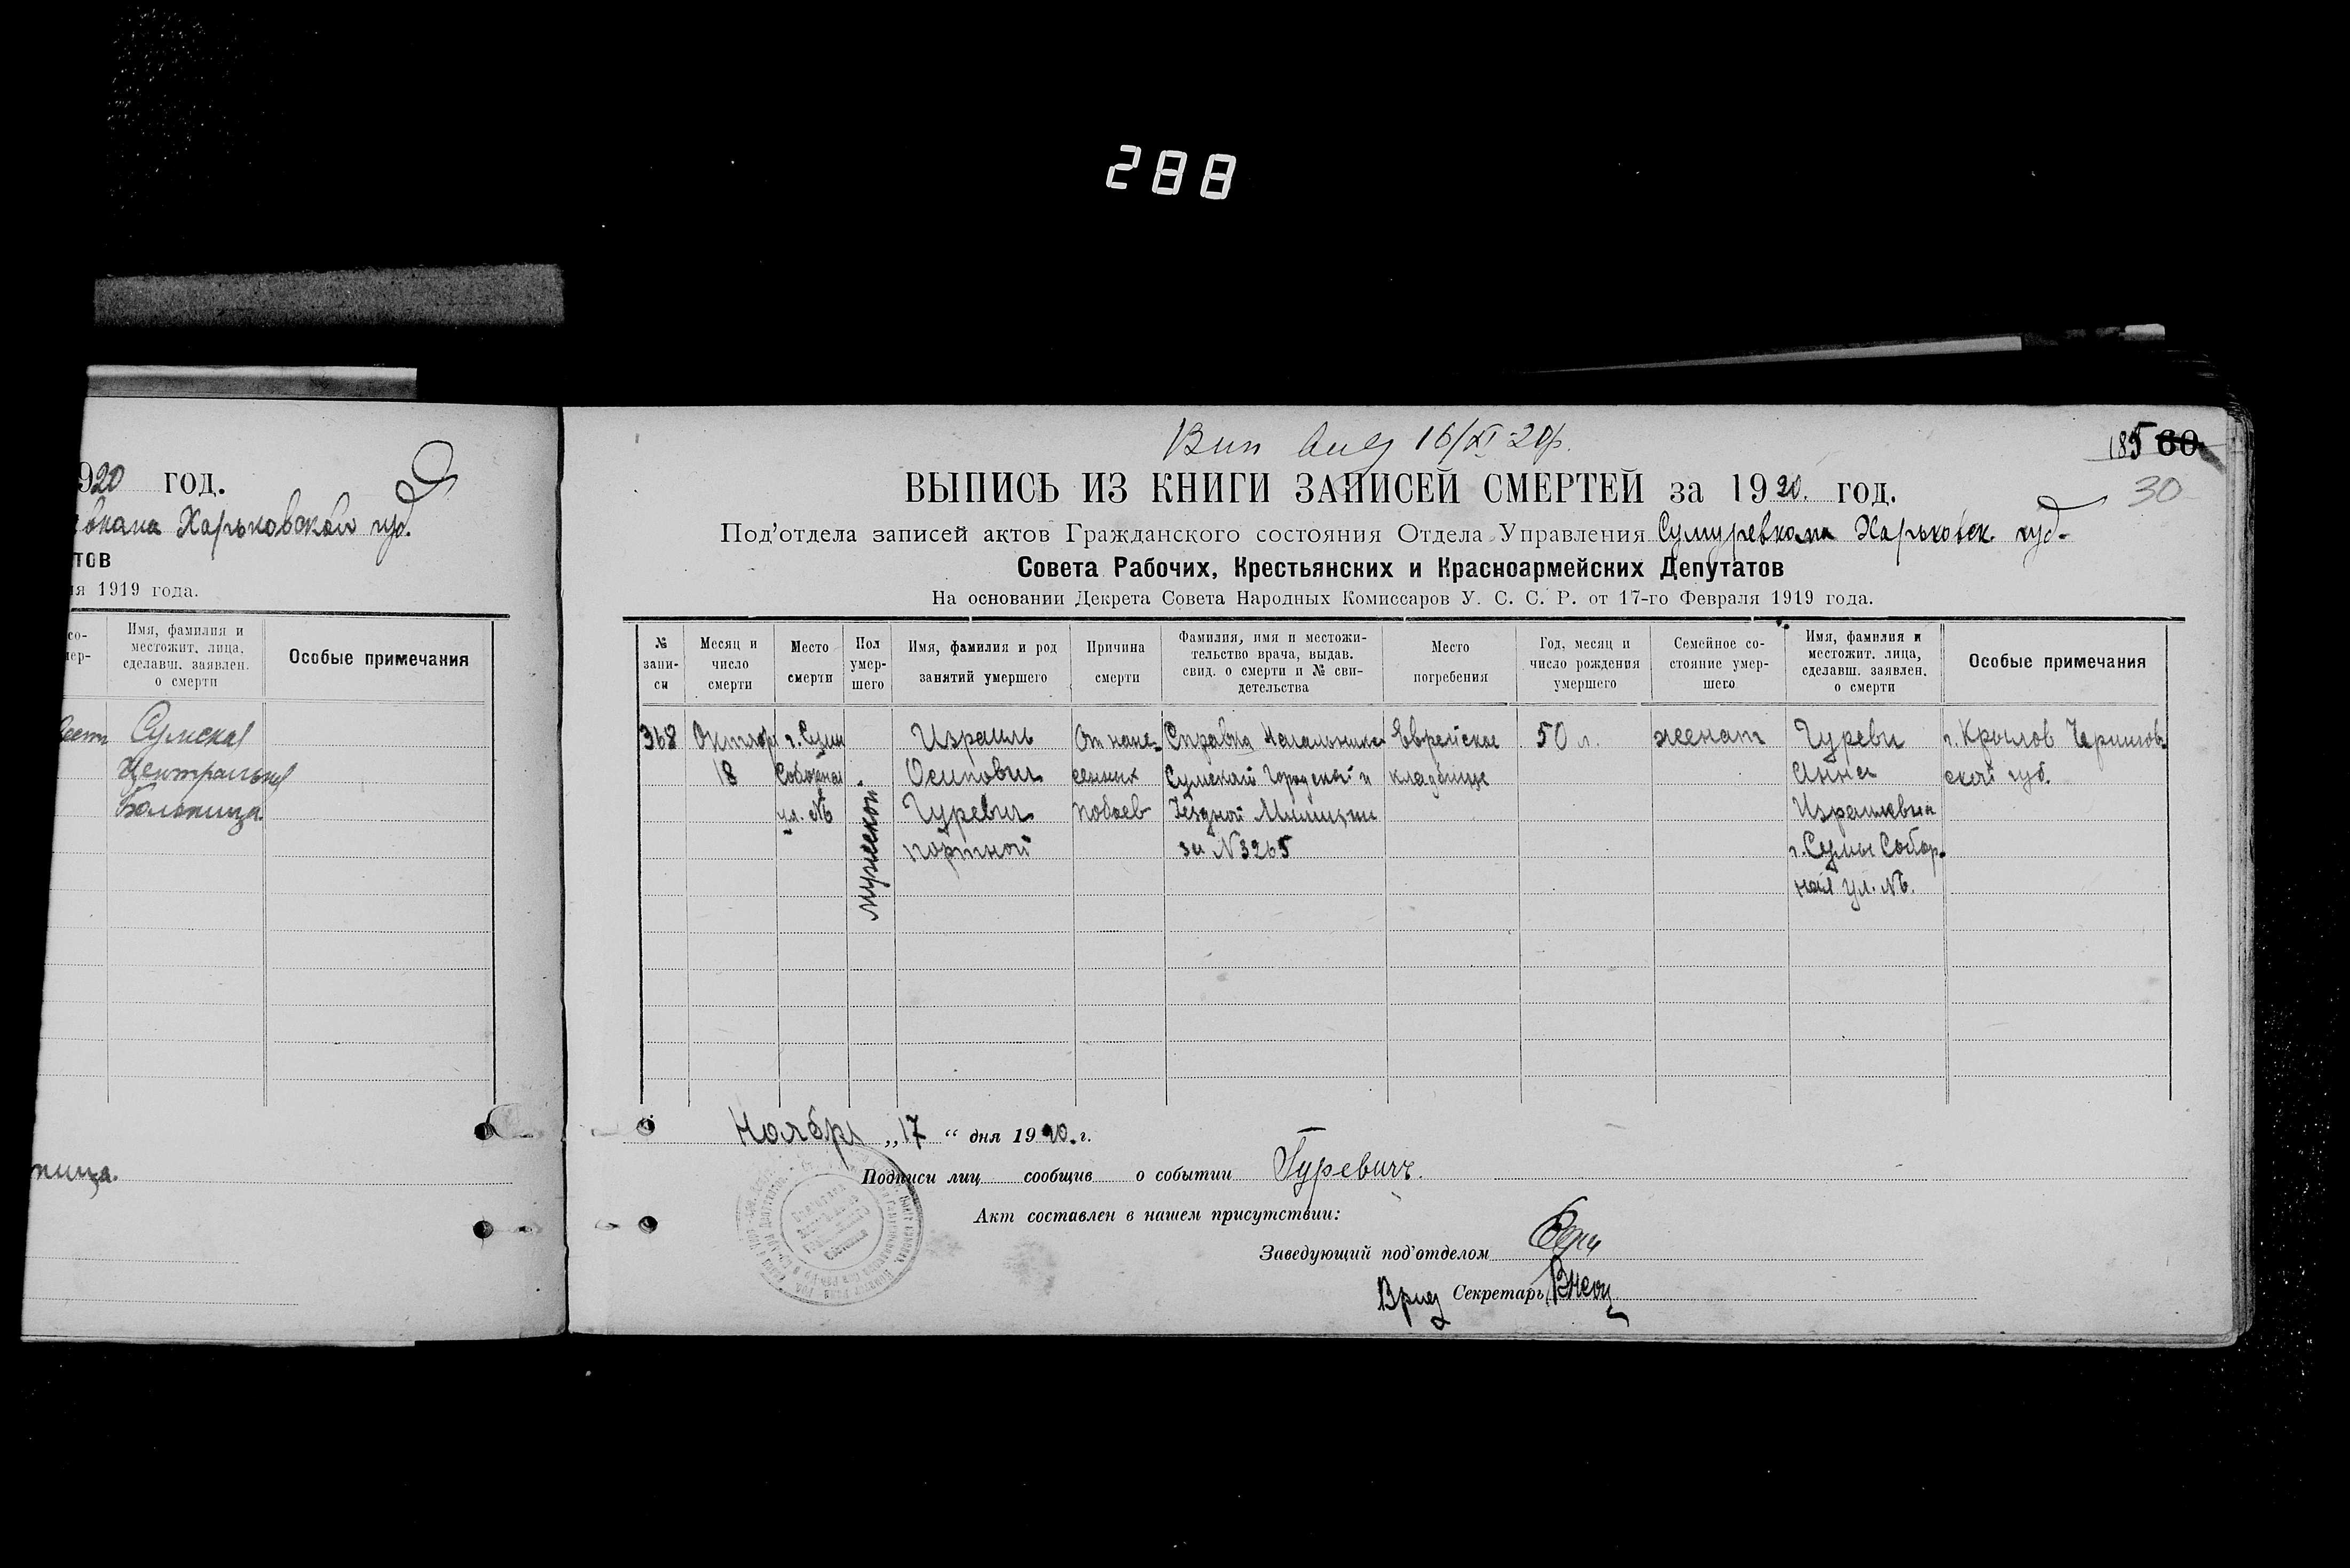 288
920 год.
Харьковской губ.
тов
ия 1919 года.
со-
мер-
Имя, фамилия и
местожит. лица,
сделавш. заявлен.
о смерти
Особые примечания
Сумская
Центральная
Больница
ница.
16/XI 20г.
185 60
30
ВЫПИСЬ ИЗ КНИГИ ЗАПИСЕЙ СМЕРТЕЙ за 1920. год.
Под'отдела записей актов Гражданского состояния Отдела Управления Сумуревкома Харьковск. губ.
Совета Рабочих, Крестьянских и Красноармейских Депутатов
На основании Декрета Совета Народных Комиссаров У. С. С. Р. от 17-го Февраля 1919 года.
№
запи-
си
Месяц и
число
смерти
Место
смерти
Пол
умер-
шего
Имя, фамилия и род
занятий умершего
Причина
смерти
Фамилия, имя и местожи-
тельство врача, выдав.
свид. о смерти и № сви-
детельства
Место
погребения
Год, месяц и
число рождения
умершего
Семейное со-
стояние умер-
шего
Имя, фамилия и
местожит. лица,
сделавш. заявлен.
о смерти
Особые примечания
368
Октябр
18
г. Сумы
Соборная
ул. №
мужской.
Израиль
Осипович
Гуревич
портной
От нане-
сенных
побоев
Справка Начальника
Сумской Городской и
Уездной Милиции
за № 3265
Еврейское
кладбище
50 л.
женат
Гуревич
Анна
Израилевна
г. Сумы Собор-
ная ул. №
г. Крылов Чернигов-
ской губ.
Ноябрь „17“ дня 1920. г.
Подписи лиц сообщив о событии Гуревичъ.
Акт составлен в нашем присутствии:
Заведующий под'отделом
Врид Секретарь